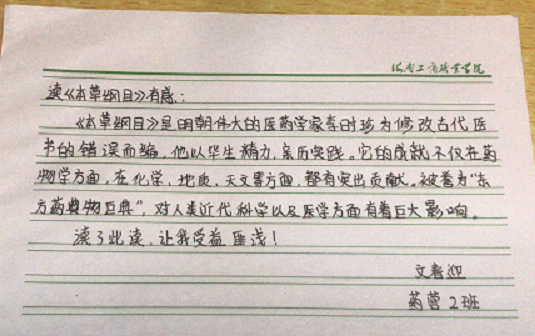 读《本草纲目》有感：
《本草纲目》是明朝伟大的医药学家李时珍为修改古代医
书的错误而编，他以毕生精力，亲历实践。它的成就不仅在药
物学方面，在化学，地质，天文等方面，都有突出贡献。被誉为“东
方药典物巨典”，对人类近代科学以及医学方面有着巨大影响。
读了此读，让我受益匪浅！
文春迎
药营2班